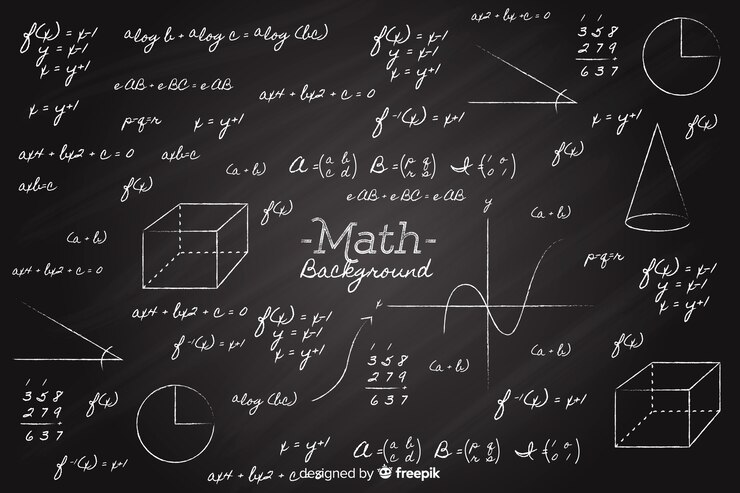 f(x) = x-1
y = x-1
x = y+1
alog b + alog c = alog (bc)
f(x) = x-1
y = x-1
x = y+1
ax2 + bx + c = 0
1 1
358
279
637
eAB + eBC = eAB
ax4 + bx2 + c = 0
x = y+1
p-q=r
x = y+1
f⁻¹(x) = x+1
x = y+1
f(x)
ax4 + bx2 + c = 0
axb=c
f(x)
(a + b)
A = (a b c d) B = (p q r s) I = (1 0 0 1)
axb=c
f(x)
eAB + eBC = eAB
f(x)
y
(a + b)
(a + b)
-Math-
Background
p-q=r
ax4 + bx2 + c = 0
f(x) = x-1
y = x-1
x = y+1
x
ax4 + bx2 + c = 0
f(x) = x-1
y = x-1
x = y+1
f⁻¹(x) = x+1
f(x)
(a + b)
1 1
358
279
637
(a + b)
1 1
358
279
637
f(x)
alog (bc)
f⁻¹(x) = x+1
x = y+1
A = (a b c d) B = (p q r s) I = (1 0 0 1)
f⁻¹(x) = x+1
ax4 + bx2 + c =
designed by freepik